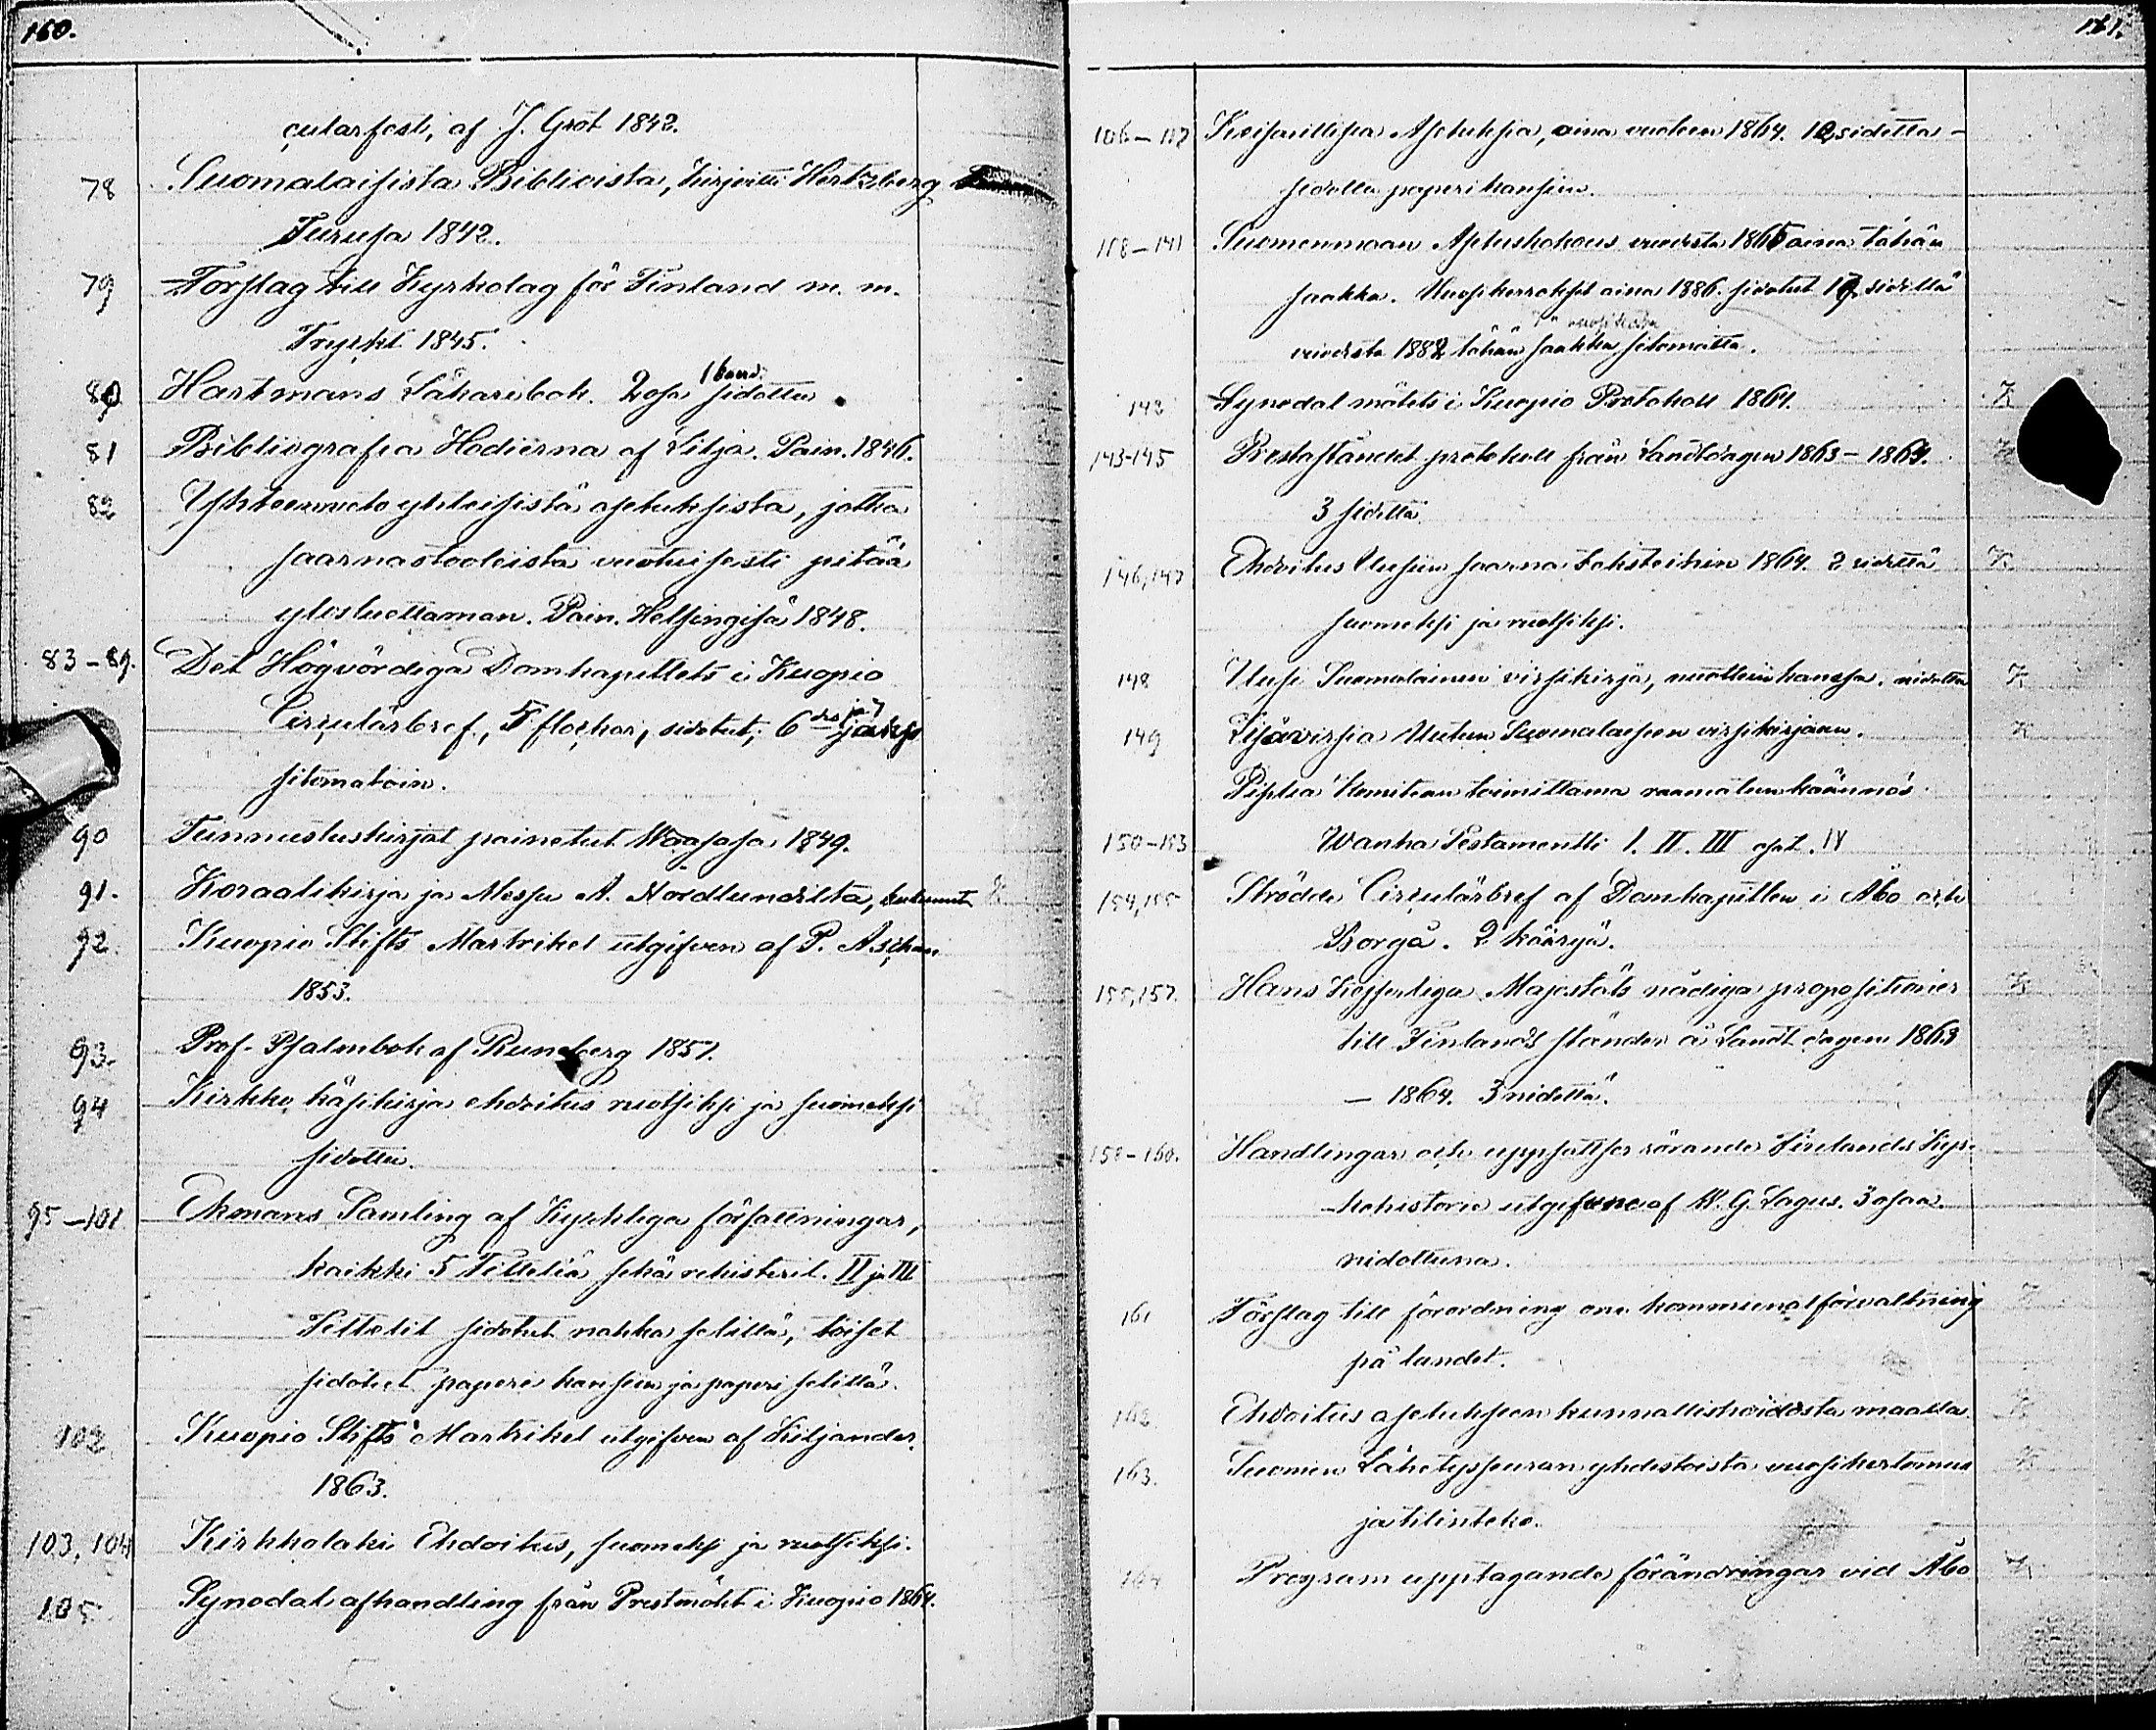 160.
cularfest, af J. Grot 1842.
78 Suomalaisista Biblioista, kirjoitti Hertzberg
Turusa 1842.
79 Förslag till Kyrkolag för Finland m. m.
Tryckt 1845.
80 Hartmans Läkaribok. 2 osa sidottu 1 band.
81 Bibliografia Hodierna af Lilja. Pain. 1846.
82 Yhteenveto yhteisistä asetuksista, jotka
saarnastooleista vuotuisesti pitää
ylösluettaman. Pain. Helsingisä 1848.
83-89. Det Högvördiga Domkapitlets i Kuopio
Circulärbref, 5 flockar, sidotut, 6 des ja 7 jakso
sitomatoin.
90 Tunnustuskirjat painetut Waasasa 1849.
91. Koraalikirja ja Messu A. Nordlundilta,
92. Kuopio Stifts Martrikel utgifven af P. Aschan
1853.
93. Prof-Psalmbok af Runeberg 1857.
94 Kirkko käsikirja ehdoitus ruotsiksi ja suomeksi
sidottu.
95-101 Ekmans Samling af Kyrkliga författningar,
kaikki 5 Titteliä sekä rekisteril. II ja III
Tittelit sidotut nahka selillä, toiset
sidotut paperi kansiin ja paperi selillä.
102 Kuopio Stifts Martrikel utgifven af Kiljander
1863.
103, 104 Kirkkolaki Ehdoitus, suomeksi ja ruotsiksi.
105. Synodal afhandling från Prestmötet i Kuopio 1864.
161.
Keisarillisia Asetuksia, aina vuoteen 1864. 12 sidettä
sidottu paperikansiin.
118-141 Suomenmaan Asetuskokous vuodesta 1865 aina tähän
saakka. Vuosikerrokset aina 1886. sidotut 17 sidettä
vuodesta 1882 tähän saakka sitomatta.
142 Synodal mötets i Kuopio Protokoll 1864. K
143-145 Presteståndet protokoll från Landtdagen 1863-1864. K
3 sidettä.
146, 147 Ehdoitus Uusiin saarna teksteihin 1864. 2 sidettä K
suomeksi ja ruotsiksi.
148 Uusi Suomalainen virsikirja, nuottein kanssa. nidottu K
149 Lisävirsiä Uuteen Suomalaiseen virsikirjaan. K
Piplia Komitean toimittama raamatun käännös
150-153 Wanha Testamentti I. II. III osat. IV
154, 155 Strödda Circulärbref af Domkapitlen i Åbo och
Borgå. 2 kääryä.
155, 157. Hans Kejserliga Majestäts nådiga propositioner K
till Finlands ständer å Landtdagen 1863
- 1864. 3 nidettä.
158-160. Handlingar och uppsatser rörande Finlands Kyr-
kohistorie utgifvne af W. G. Lagus. 3 osaa
nidottuna.
161 Förslag till förordning om kommunalförvaltning K
på landet.
162 Ehdoitus asetukseen kunnallishoidosta maalla. K
163. Suomen Lähetysseuran yhdestoista vuosikertomus K
ja tilinteko.
164 Program upptagande förändringar vid Åbo K